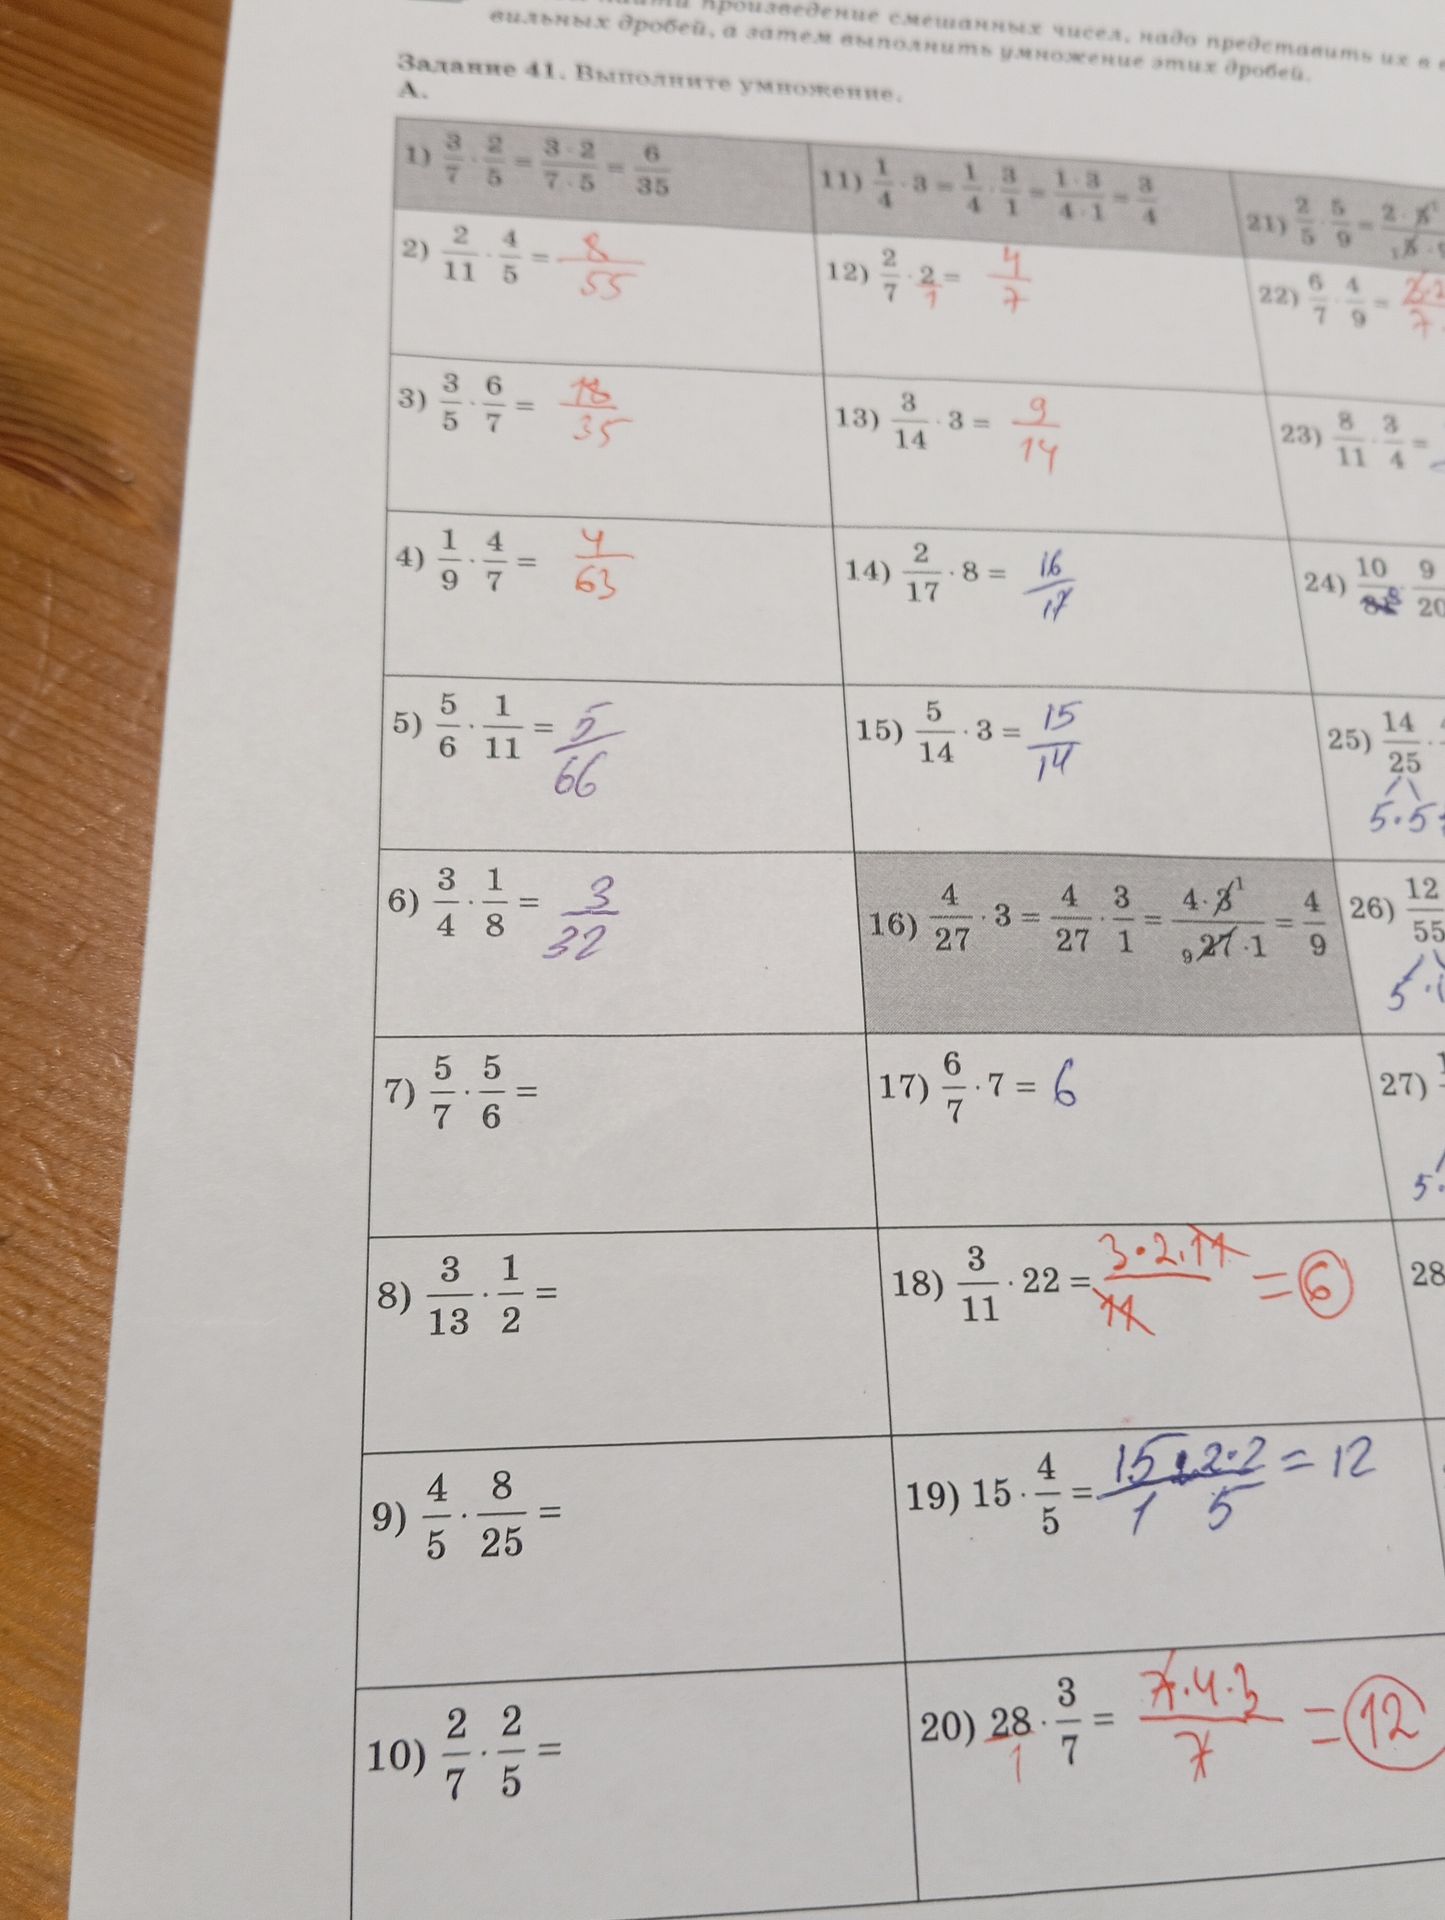 произведение смешанных чисел, надо представить их в
вильных дробей, а затем выполнить умножение этих дробей.
Задание 41. Выполните умножение.
А.
1) 3/7 · 2/5 = 3 · 2/7 · 5 = 6/35
11) 1/4 · 3 = 1/4 · 3/1 = 1 · 3/4 · 1 = 3/4
21) 2/5 · 5/9 =
2) 2/11 · 4/5 = 8/55
12) 2/7 · 2/1 = 4/7
22) 6/7 · 4/9 =
3) 3/5 · 6/7 = 18/35
13) 3/14 · 3 = 9/14
23) 8/11 · 3/4 =
4) 1/9 · 4/7 = 4/63
14) 2/17 · 8 = 16/17
24) 10 9/20
5) 5/6 · 1/11 = 5/66
15) 5/14 · 3 = 15/14
25) 14/25 ·
5·5
6) 3/4 · 1/8 = 3/32
16) 4/27 · 3 = 4/27 · 3/1 = 4 · 3 1/9 27 · 1 = 4/9
26) 12/55
5·
7) 5/7 · 5/6 =
17) 6/7 · 7 = 6
27)
5·
8) 3/13 · 1/2 =
18) 3/11 · 22 = 3·2·11/11 = 6
28
9) 4/5 · 8/25 =
19) 15 · 4/5 = 15·2·2/1 5 = 12
10) 2/7 · 2/5 =
20) 28/1 · 3/7 = 7·4·3/7 = 12